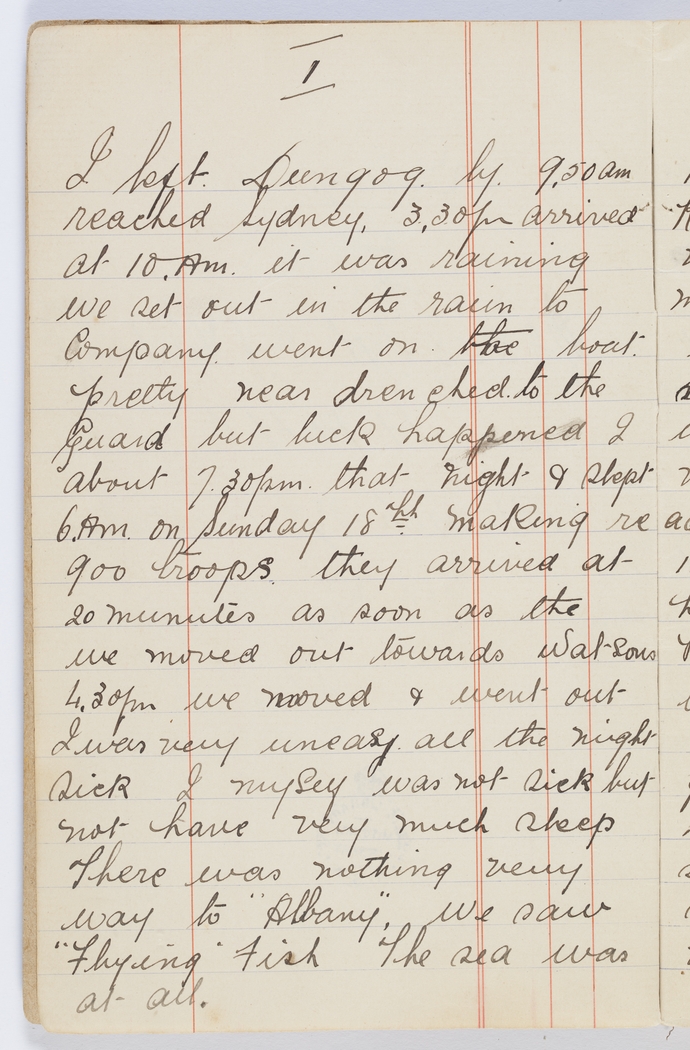 1
I left. Dungog. by. 9,50am
reached Sydney, 3,30pm arrived
at 10.Am. it was raining
we set out in the rain to
Company. went on. the boat.
pretty near drenched. to the
Guard but luck happened I
about 7.30pm. that night & slept
6.Am. on Sunday 18th making re
900 troops. they arrived at
20 munutes as soon as the
we moved out towards Watsons
4,30pm we moved & went out
I was very uneasy. all the night
sick I myself was not sick but
not have very much sleep
There was nothing very
way to "Albany", we saw
"Flying" Fish The sea was
at all.